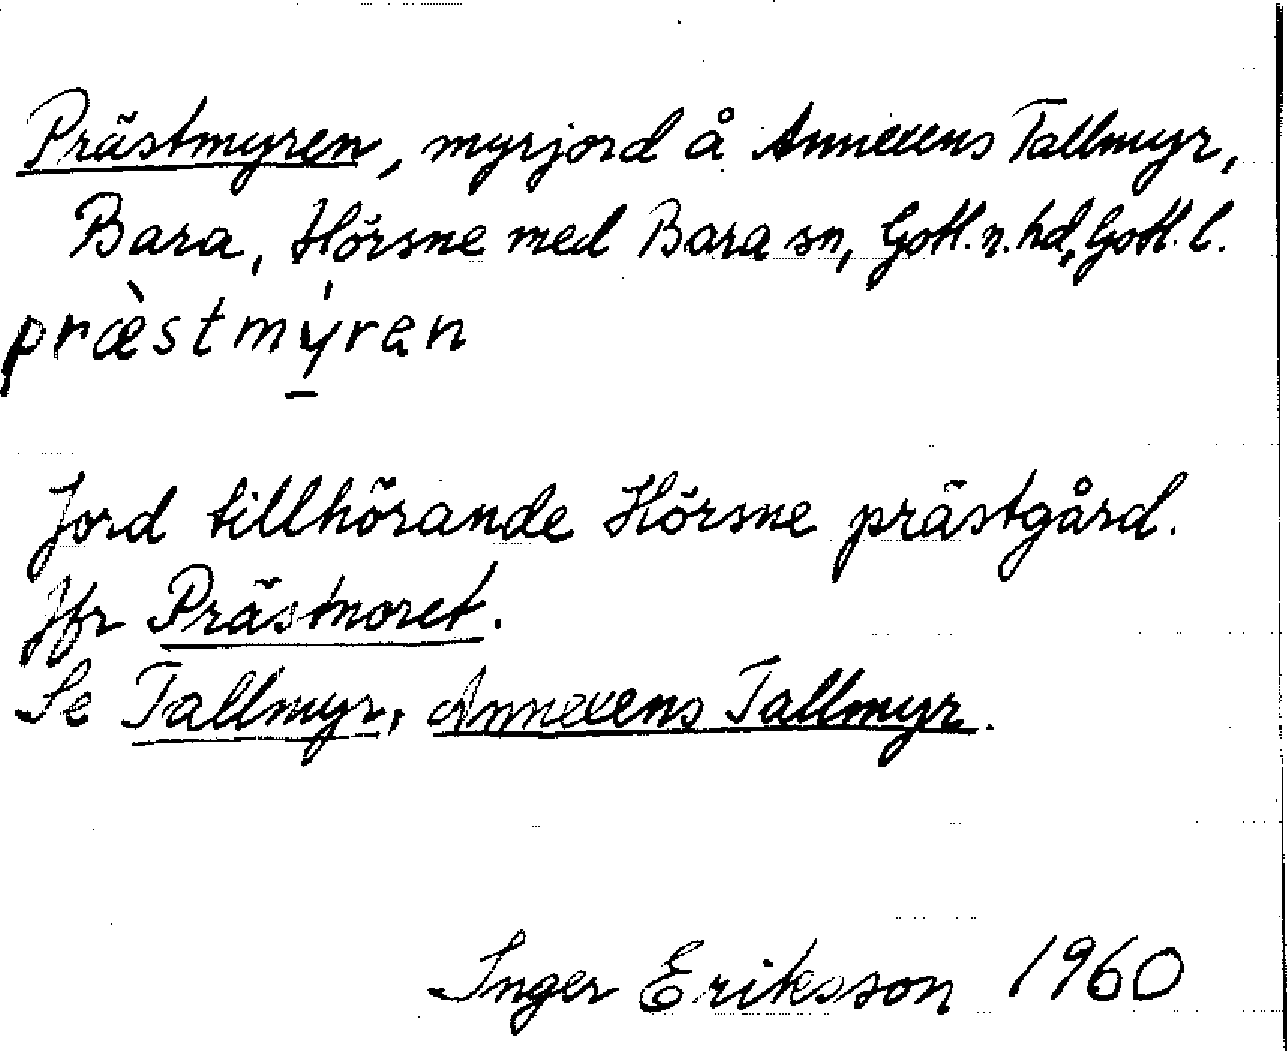 Prästmyren, myrjord å Annexens Tallmyr,
Bara, Hörsne med Bara sn, Gotl. n. hd, Gotl. l.
præ̀stmýran
Jord tillhörande Hörsne prästgård.
Jfr Prästnoret.
Se Tallmyr, Annexens Tallmyr.
Inger Eriksson 1960